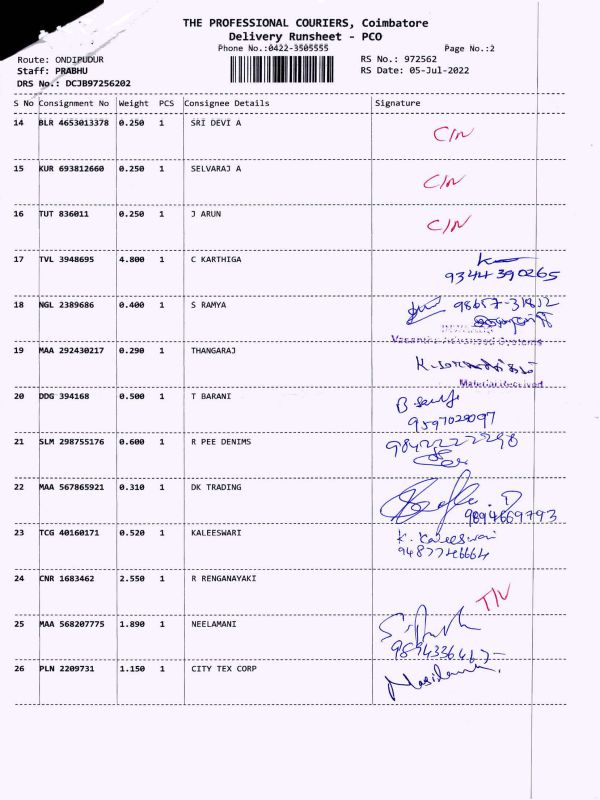 THE PROFESSIONAL COURIERS, Coimbatore
Delivery Runsheet - PCO
Phone No.:0422-3505555 Page No.:2
Route: ONDIPUDUR RS No.: 972562
Staff: PRABHU RS Date: 05-Jul-2022
DRS No.: DCJB97256202
S No Consignment No Weight PCS Consignee Details Signature
14 BLR 4653013378 0.250 1 SRI DEVI A C/N
15 KUR 693812660 0.250 1 SELVARAJ A C/N
16 TUT 836011 0.250 1 J ARUN C/N
17 TVL 3948695 4.800 1 C KARTHIGA
9344390265
18 NGL 2389686 0.400 1 S RAMYA 98657-31812
19 MAA 292430217 0.290 1 THANGARAJ
Material Received
20 DDG 394168 0.500 1 T BARANI
9597029097
21 SLM 298755176 0.600 1 R PEE DENIMS 9842222298
22 MAA 567865921 0.310 1 DK TRADING
9894669793
23 TCG 40160171 0.520 1 KALEESWARI K. Kaleeswari
9487746664
24 CNR 1683462 2.550 1 R RENGANAYAKI T/N
25 MAA 568207775 1.890 1 NEELAMANI
26 PLN 2209731 1.150 1 CITY TEX CORP